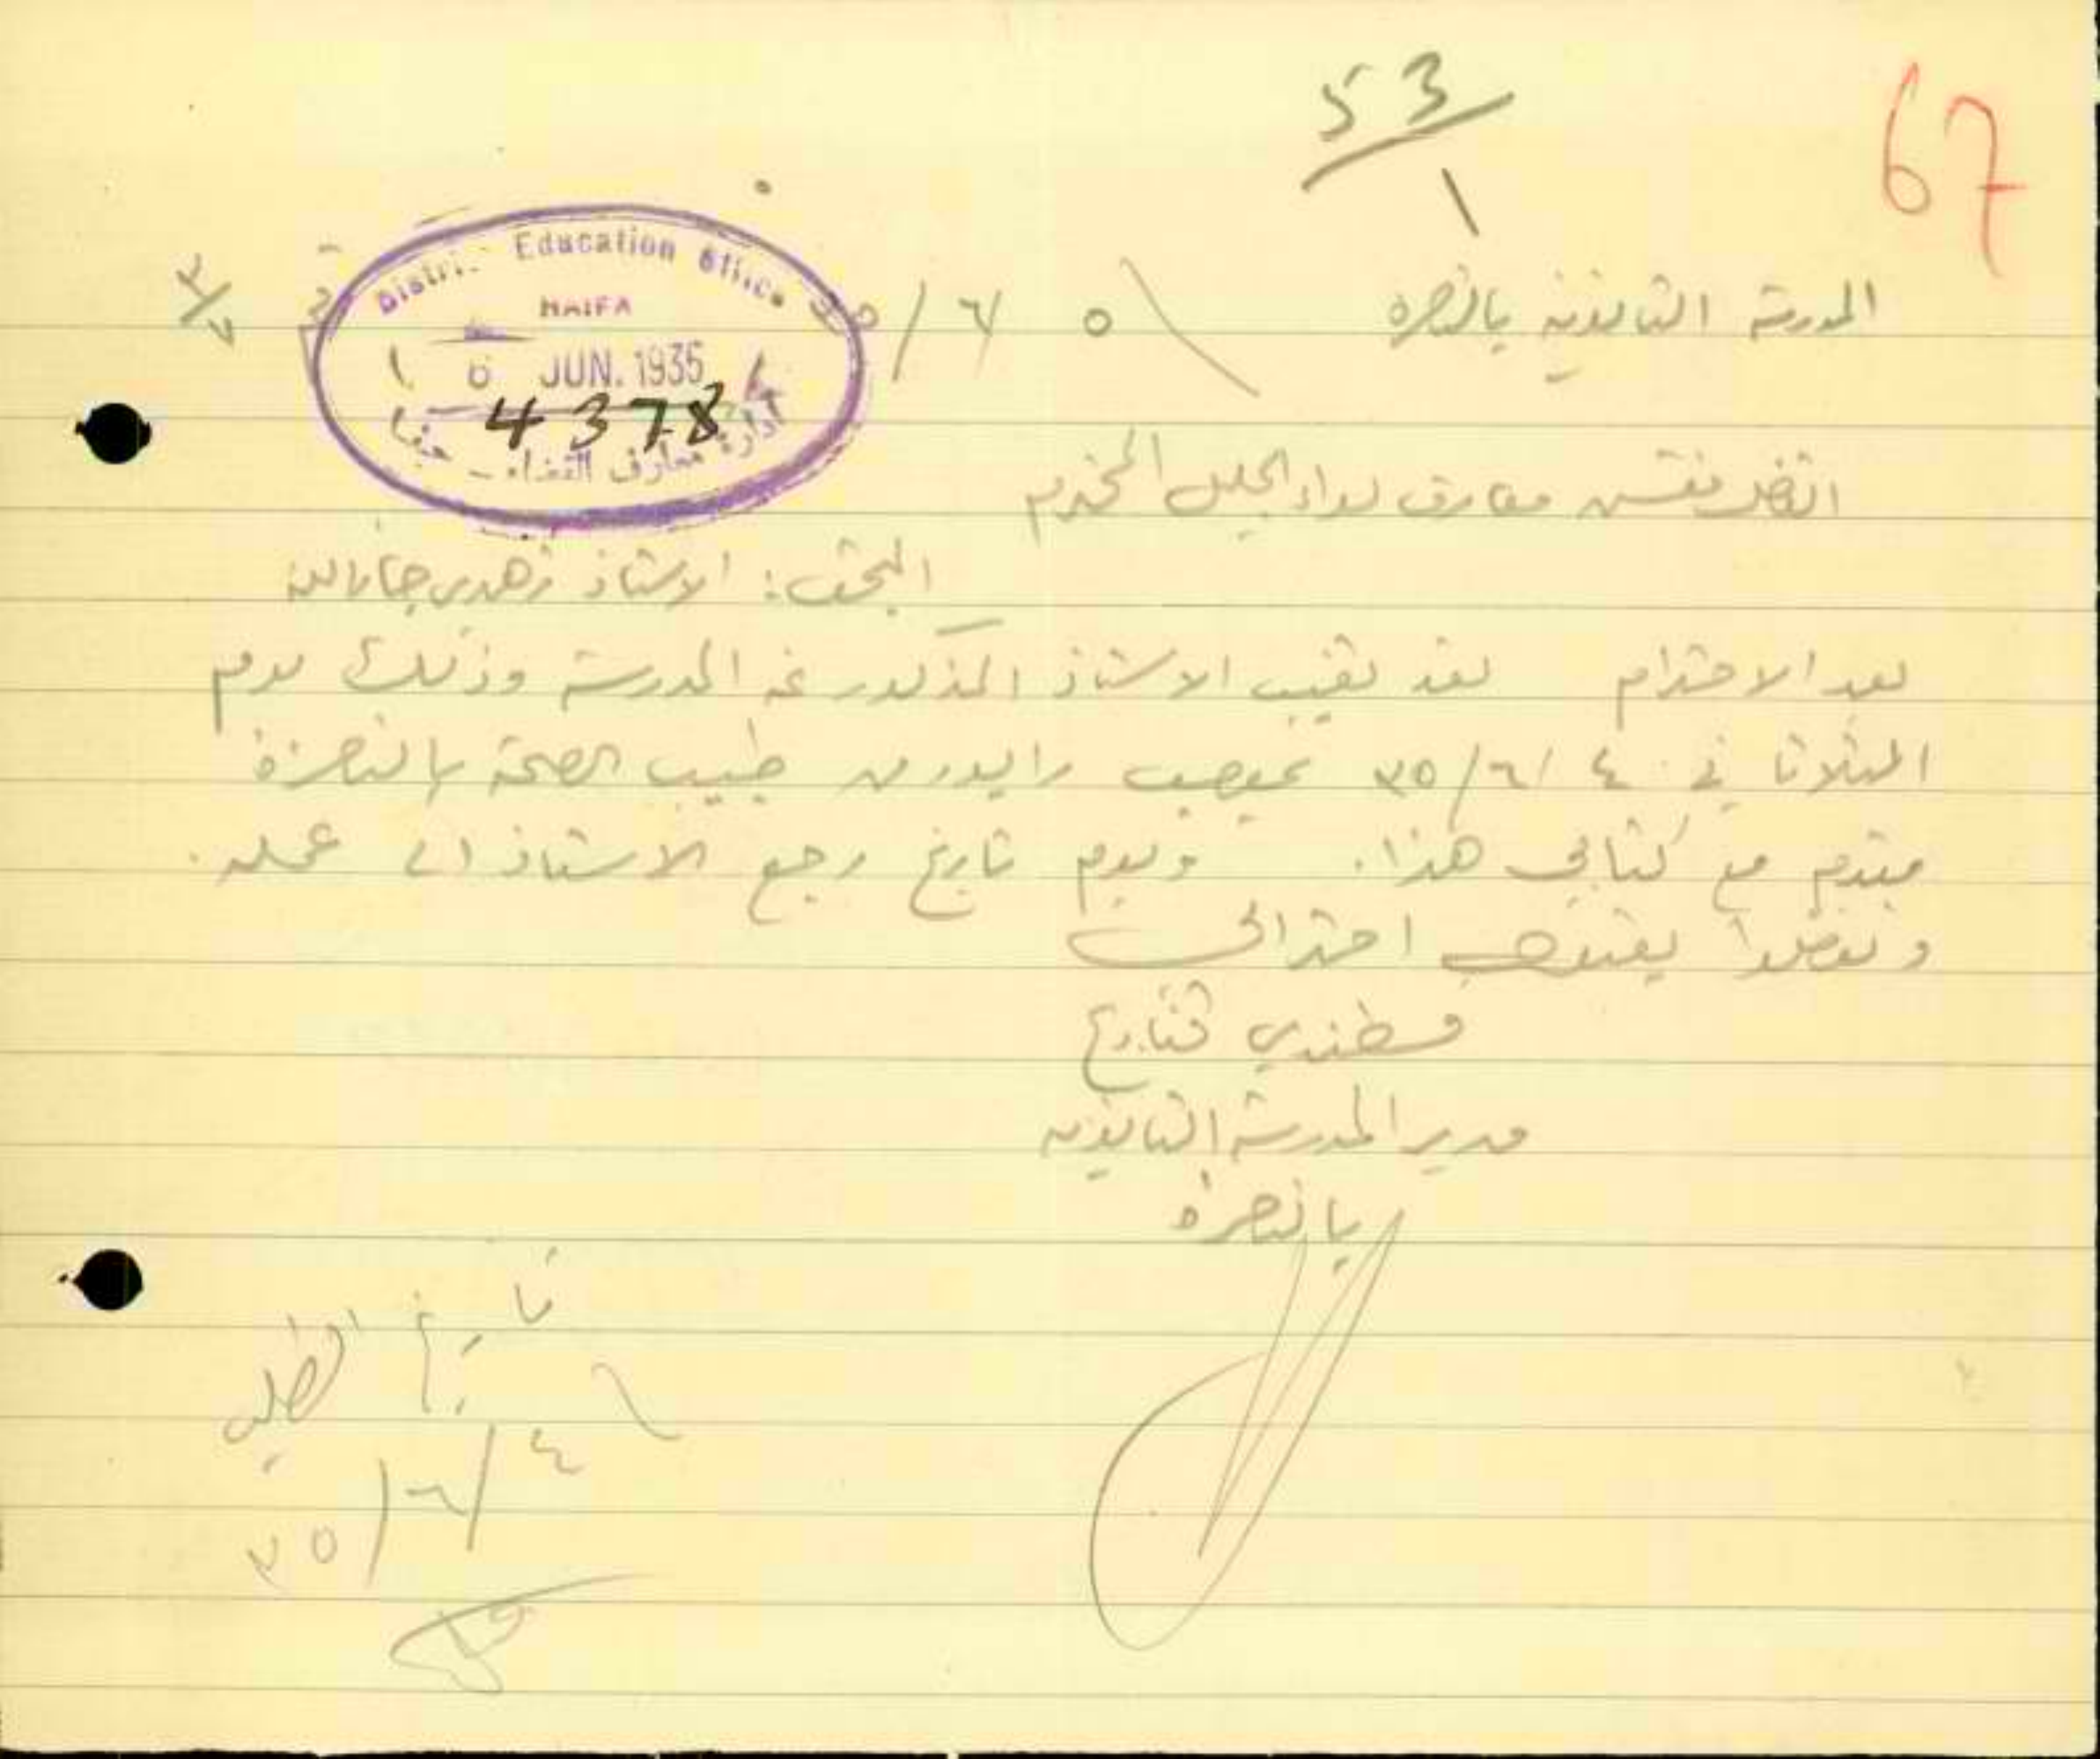 53/1
67
المدرسة الثانوية بالناصرة
٥ / ٦ / ٣٥
District Education Office
HAIFA
6 JUN. 1935
4378
ادارة معارف القضاء - حيفا
مفتش معارف لواء الجليل المحترم
المبحث: الاستاذ زهدي جارالله
بعد الاحترام لقد تغيب الاستاذ المذكور عن المدرسة وذلك يوم
الثلاثا في ٤ /٦/ ٣٥ طبيب الصحة بالناصرة
مقدم مع كتابي هذا. ويوم تاريخ رجع الاستاذ الى عمله.
وتفضلوا بقبول احترامي
قسطندي قنازع
مدير المدرسة الثانوية
بالناصرة
٤/٦/٣٥